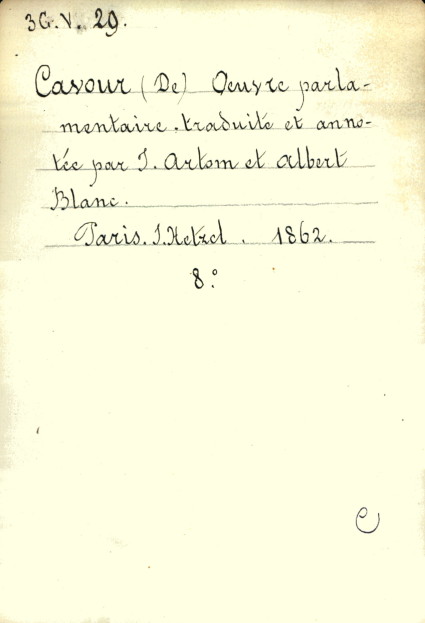 3G.V. 29.
Cavour (De) Oeuvre parla-
mentaire. traduite et anno-
tée par I. Artom et Albert
Blanc.
Paris. J. Hetzel. 1862.
8.º
C